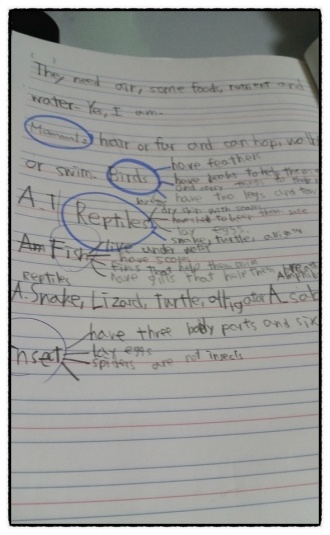 They need air, some foods, nutrient and
water. Yes, I am.
Mammals hair or fur and can hop, walk
or swim. Birds have feathers
have beaks to help them
have two legs and
A 1 Reptiles dry skin with scales
lay eggs.
snake, turtle, alligator
Am Fish live under water
have scales
Fins that help them swim
Reptiles have gills that help them
A. Snake, Lizard, Turtle, alligator A sala
Insect have three body parts and six
lay eggs
spiders are not insects